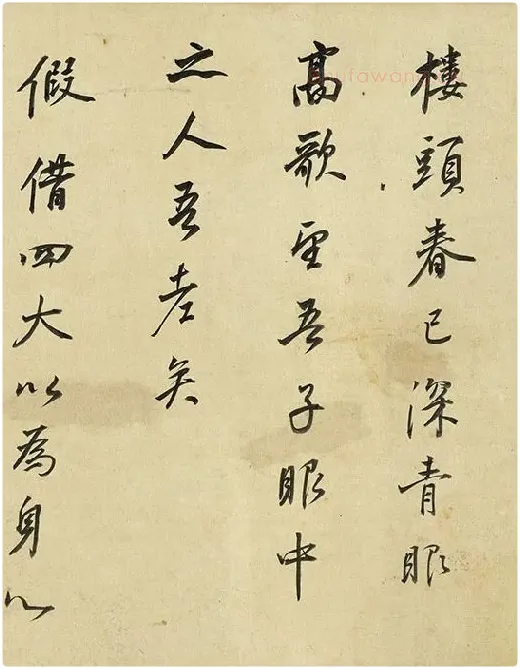 樓頭春已深青眼
高歌望吾子眼中
之人吾老矣
假借四大以為身以